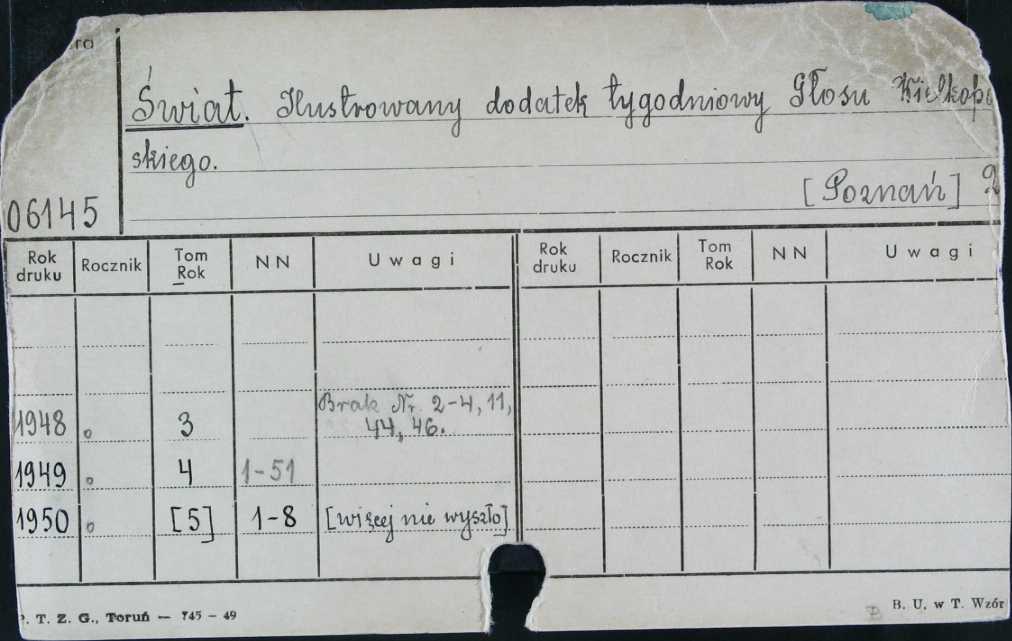 ra
Świat. Ilustrowany dodatek tygodniowy Głosu Wielkopo
skiego.
[Poznań] 2
06145
Rok druku Rocznik Tom Rok NN Uwagi Rok druku Rocznik Tom Rok NN Uwagi
1948 " 3 Brak Nr. 2-4, 11,
44, 46.
1949 " 4 1-51
1950 " [5] 1-8 [więcej nie wyszło]
P. T. Z. G., Toruń — 745 - 49
B. U. w T. Wzór